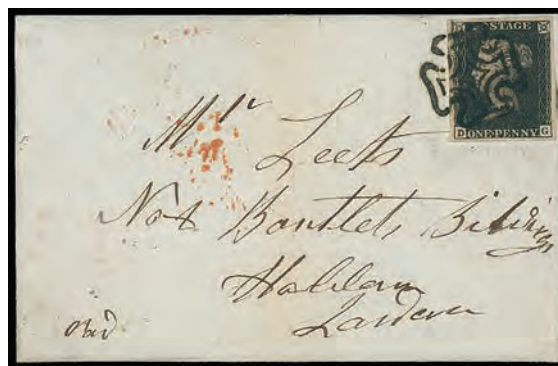 POSTAGE
D ONE PENNY G
Mr Leets
No 8 Bartlets Bildings
Holborn
London